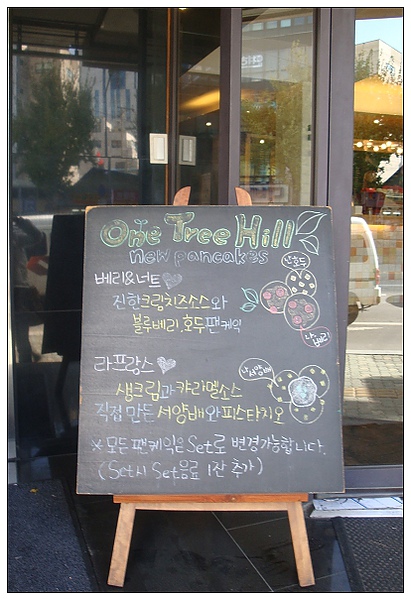 One Tree Hill
new pancakes
베리&너트
진한크림치즈소스와
블루베리, 호두 팬케익
난호두
나베리
라프랑스
생크림과 캬라멜소스
직접 만든 서양배와피스타치오
나서양배
※모든 팬케익은 Set로 변경가능합니다.
(Set시 Set음료 1잔 추가)